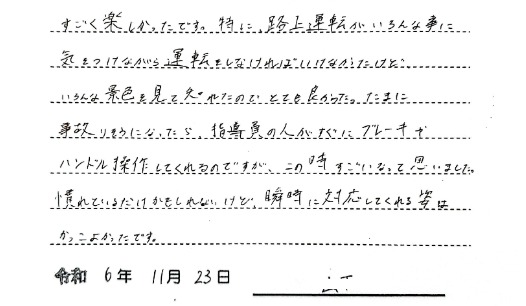 すごく楽しかったです。特に、路上運転がいろんな事に
気をつけながら運転をしなければいけなかったけど、
いろんな景色を見て知れたのでとても良かった。たまに
事故りそうになったら、指導員の人がすぐにブレーキや
ハンドル操作してくれるのですが、この時すごいなって思いました。
慣れているだけかもしれないけど、瞬時に対応してくれる姿は
かっこよかったです。
令和 6年 11月 23日